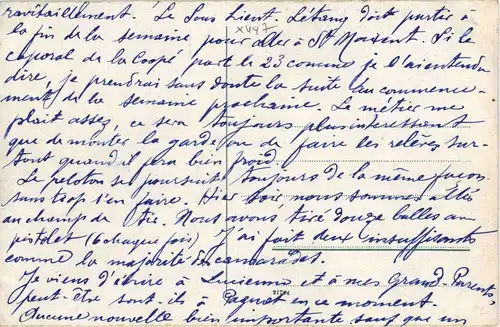 ravitaillement. Le Sous Lieut. Létang doit partir à
la fin de la semaine pour aller à St Maixent. Si le
caporal de la Coopé part le 23 comme je l'ai entendu
dire, je prendrai sans doute la suite au commence-
ment de la semaine prochaine. Le métier me
plait assez, ce sera toujours plus intéressant
que de monter la garde ou de faire les relèves sur-
tout quand il fera bien froid.
Le peloton se poursuit toujours de la même façon
sans trop s'en faire. Hier soir, nous sommes allés
au champ de tir. Nous avons tiré douze balles au
pistolet (6 chaque fois) J'ai fait deux insuffisants
comme la majorité des camarades.
Je viens d'écrire à Lucienne et à mes Grand-Parents
peut-être sont-ils à Pagnot en ce moment.
Aucune nouvelle bien importante sauf que un